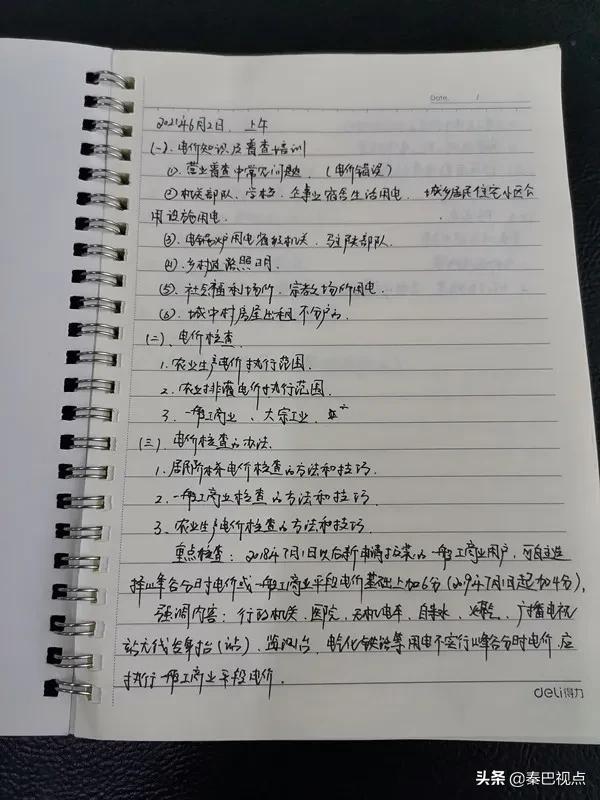 Date. /
2021年6月2日. 上午
(一)、电价知识及普查培训
①. 营业普查中常见问题. (电价错误)
②机关部队、学校、企事业宿舍生活用电. 城乡居民住宅小区公
用设施用电.
(3). 电锅炉用电省级机关、驻陕部队.
(4). 乡村路照明.
(5). 社会福利场所、宗教场所用电.
(6). 城中村房屋出租不分户的.
(二)、电价检查.
1. 农业生产电价执行范围.
2. 农业排灌电价执行范围.
3. 一般工商业、大宗工业.
(三)、电价检查的办法.
1. 居民阶梯电价检查的方法和技巧.
2. 一般工商业检查的方法和技巧.
3、农业生产电价检查的方法和技巧.
重点检查: 2018年7月1日以后新申请报装的一般工商业用户, 可自主选
择峰谷分时电价或一般工商业平段电价基础上加6分(2019年7月1日起加4分),
强调内容: 行政机关、医院、无轨电车、自来水、燃气、广播电视
站无线台年台(站)、监测台、电气化铁路等用电不实行峰谷分时电价. 应
执行一般工商业平段电价.
deli得力
头条 @秦巴视点